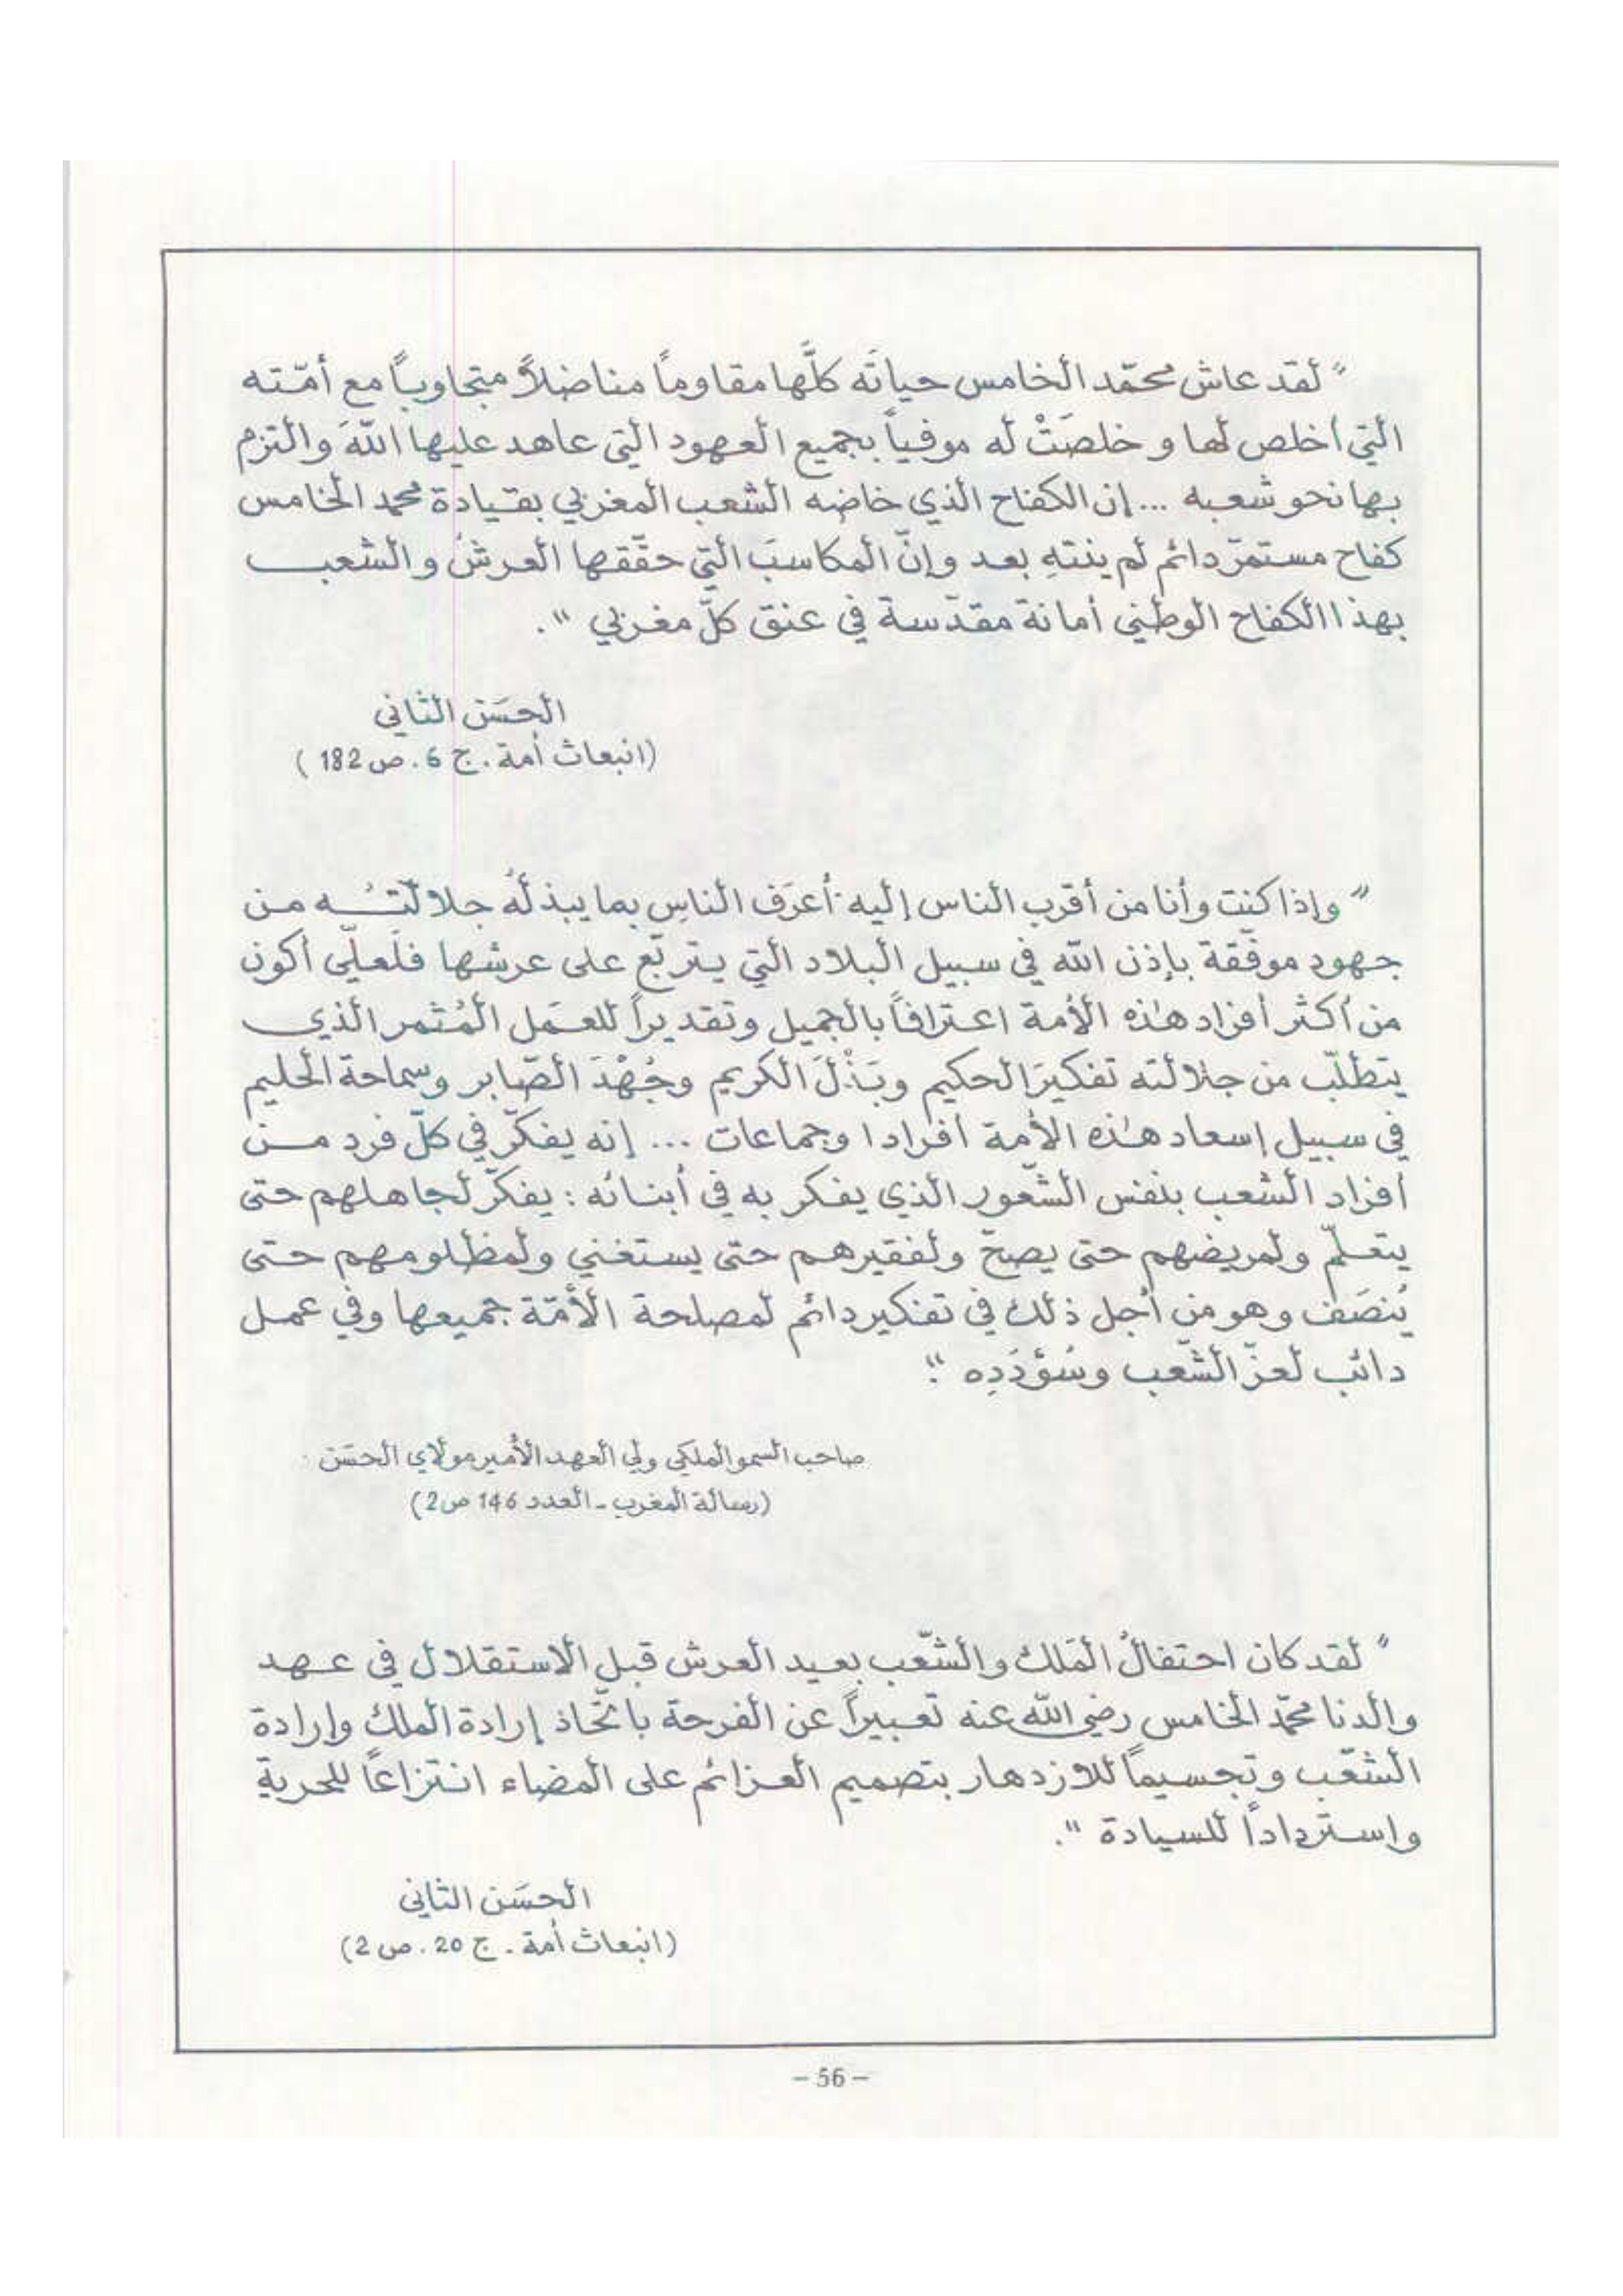 " لقد عاش محمّد الخامس حياتَه كلَّها مقاوماً مناضلاً متجاوباً مع أمّته
التي أخلص لها و خلصَتْ له موفياً بجميع العهود التي عاهد عليها اللّهَ والتزم
بها نحو شعبه ... إن الكفاح الذي خاضه الشعب المغربي بقيادة محمد الخامس
كفاح مستمرّ دائم لم ينتهِ بعد وإنّ المكاسبَ التي حقّقها العرشُ والشعب
بهذا الكفاح الوطني أمانة مقدّسة في عنق كلّ مغربي ".
الحسَن الثاني
(انبعاث أمة . ج 6 . ص 182 )
" وإذا كنت وأنا من أقرب الناس إليه أعرَف الناسِ بما يبذلُه جلالتُه من
جهود موفّقة بإذن اللّه في سبيل البلاد التي يتربّع على عرشها فلَعلّي أكون
من أكثر أفراد هذه الأمة اعترافاً بالجميل وتقديراً للعمَل المُثمر الذي
يتطلّب من جلالته تفكيرَ الحكيم وبَذْلَ الكريم وجُهْدَ الصّابر وسماحة الحليم
في سبيل إسعاد هذه الأمة أفرادا وجماعات ... إنه يفكّر في كلّ فرد من
أفراد الشعب بنفس الشّعور الذي يفكر به في أبنائه : يفكّر لجاهلهم حتى
يتعلّم ولمريضهم حتى يصحّ ولفقيرهم حتى يستغني ولمظلومهم حتى
يُنصَف وهو من أجل ذلك في تفكير دائم لمصلحة الأمّة جميعها وفي عمل
دائب لعزّ الشّعب وسُؤدَدِه ".
صاحب السمو الملكي ولي العهد الأمير مولاي الحسَن
(رسالة المغرب - العدد 146 ص 2)
" لقد كان احتفالُ المَلك والشّعب بعيد العرش قبل الاستقلال في عهد
والدنا محمّد الخامس رضي اللّه عنه تعبيراً عن الفرحة باتّحاد إرادة الملك وإرادة
الشّعب وتجسيماً للازدهار بتصميم العزائم على المضاء انتزاعاً للحرية
واسترداداً للسيادة ".
الحسَن الثاني
(انبعاث أمة . ج 20 . ص 2)
– 56 –